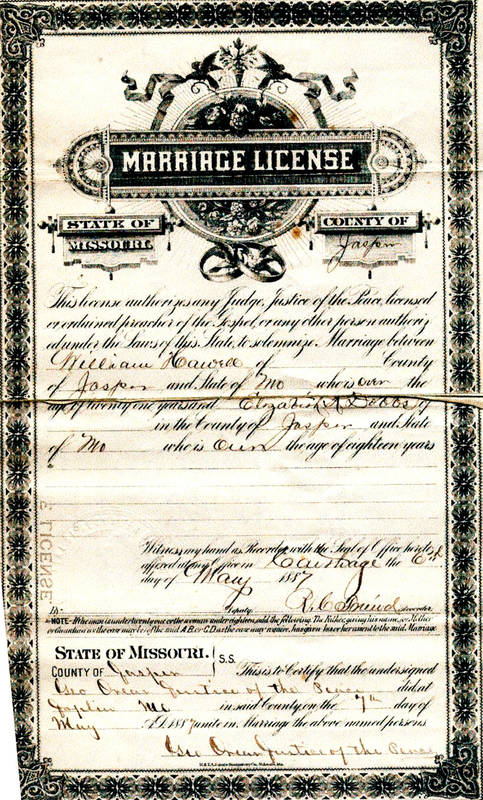 MARRIAGE LICENSE
STATE OF MISSOURI.
COUNTY OF Jasper
This license authorizes any Judge, Justice of the Peace, licensed
or ordained preacher of the Gospel, or any other person authoriz-
ed under the Laws of this State, to solemnize Marriage between
William of County
of Jasper and State of Mo who is over the
age of twenty one years and Elizabeth A Dobbs of
in the County of Jasper and State
of Mo who is over the age of eighteen years
Witness, my hand as Recorder, with the Seal of Office hereto
affixed at my Office in Carthage the 6th
day of May 1887
By Deputy. Recorder
NOTE-If the man is under twenty one or the woman under eighteen, add the following. The Father, giving his name, or Mother
or Guardian as the case may be of the said A.B. or C.D. as the case may require, has given his or her assent to the said Marriage.
LICENSE
STATE OF MISSOURI.
COUNTY OF Jasper
S.S. This is to Certify that the undersigned
Justice of the Peace did, at
Joplin Mo in said County on the 7th day of
May A.D. 1887 unite in Marriage the above named persons
Justice of the Peace